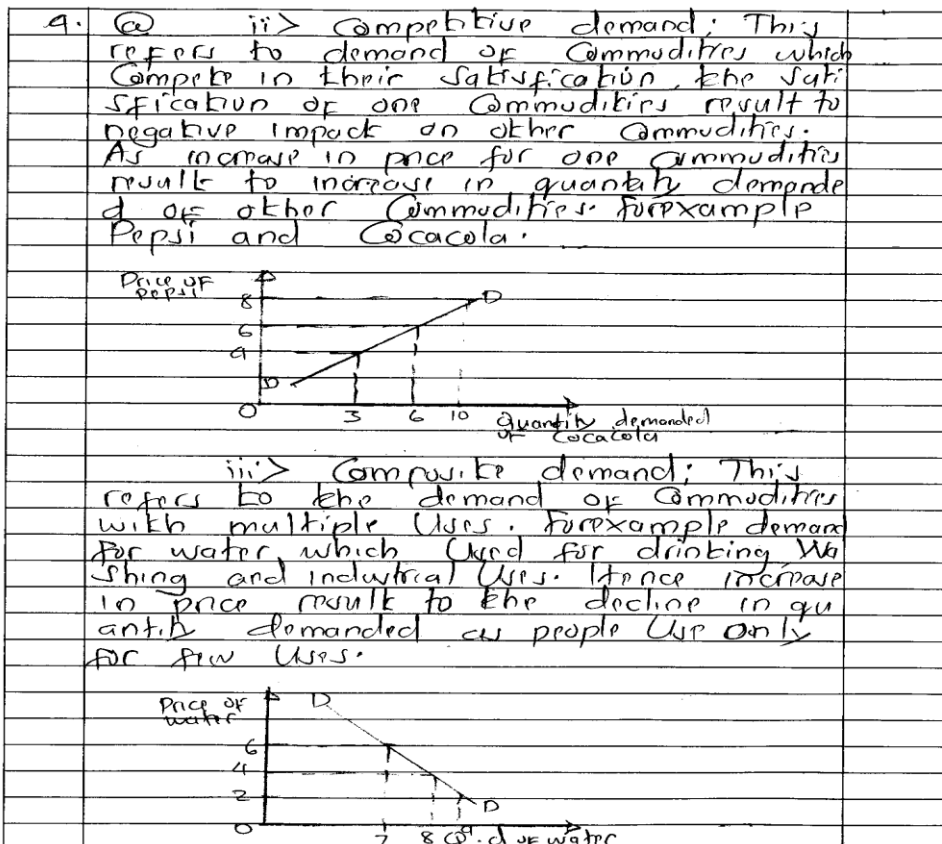 4. (a) ii> Competitive demand; This
refers to demand of Commodities which
Compete in their Satisfication, the Sati
sfication of one Commodities result to
negative impact on other Commodities.
As increase in price for one Commodities
result to increase in quantity demande
d of other Commodities. forexample
Pepsi and Cocacola.
Price of
pepsi
8
D
6
4
D
0 3 6 10
quantity demanded
of Cocacola
iii> Composite demand; This
refers to the demand of Commodities
with multiple Uses. forexample demand
for water, which Used for drinking Wa
shing and industrial Uses. Hence increase
in price result to the decline in qu
antity demanded as people Use Only
for few Uses.
Price of
water
D
6
4
2
D
0 7 8 d of water